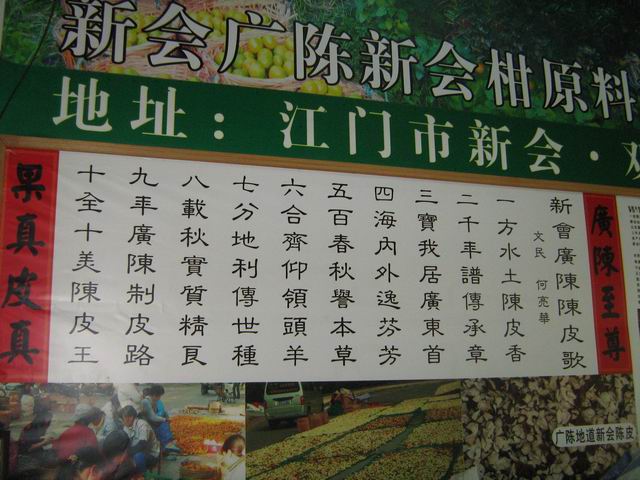 新会广陈新会柑原料
地址：江门市新会·
廣陳至尊
新會廣陳陳皮歌
文民 何亮華
一方水土陳皮香
二千年譜傳承章
三寶我居廣東首
四海內外逸芬芳
五百春秋譽本草
六合齊仰領頭羊
七分地利傳世種
八載秋實質精良
九年廣陳制皮路
十全十美陳皮王
果真皮真
广陈地道新会陈皮